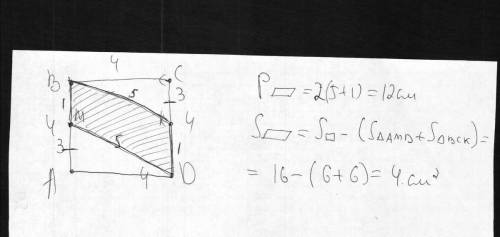 4
B C
1 5 3
4 M K 4
3 5 1
A 4 D
P▱ = 2(5+1) = 12 см
S▱ = S□ - (S△AMD + S△BCK) =
= 16 - (6+6) = 4 см²